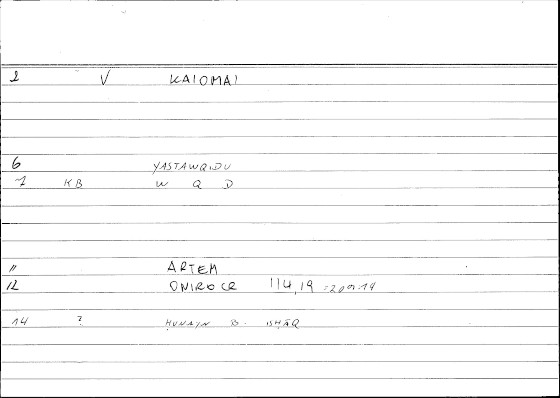 2 V KAIOMAI
6 YASTAWQIDU
7 KB W Q D
11 ARTEM
12 ONIROCR 114,19 = 209.14
14 ? ḤUNAYN B. ISḤĀQ